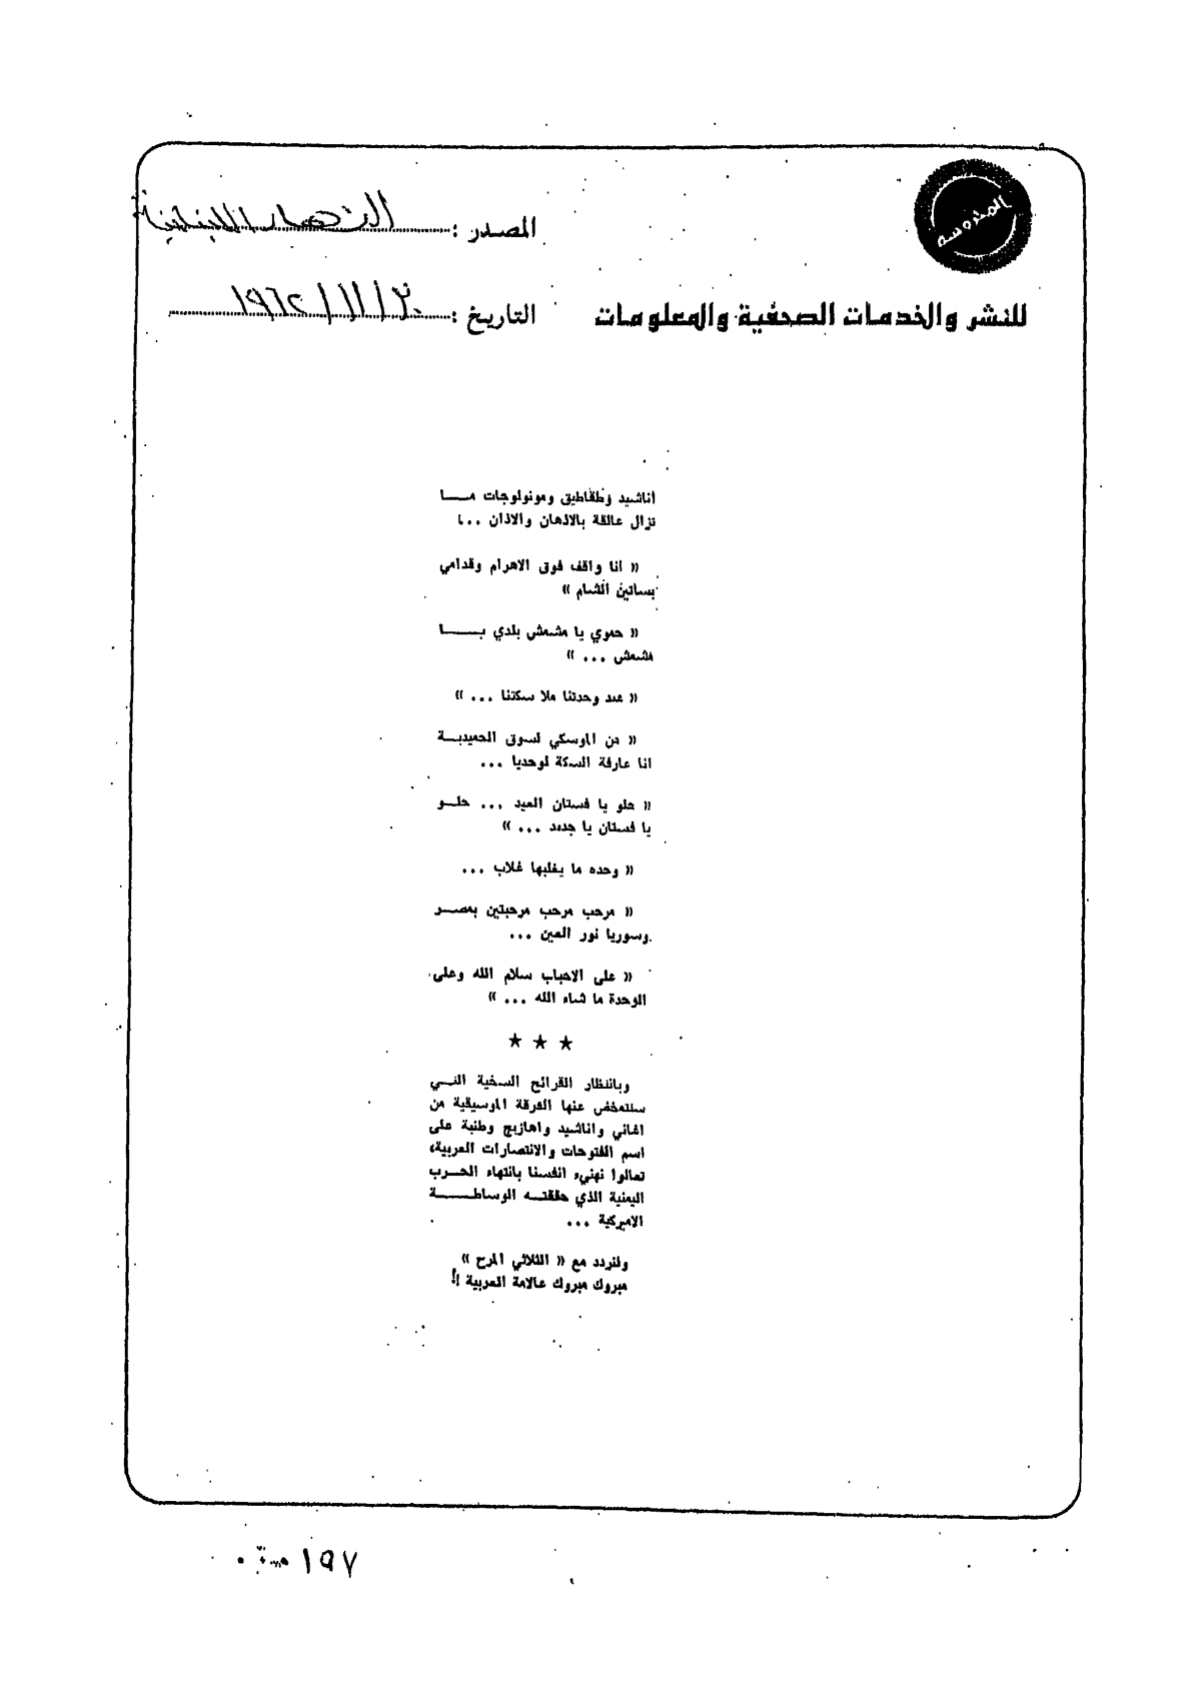 المحروسة
المصدر : النهار اللبنانية
للنشر والخدمات الصحفية والمعلومات
التاريخ : ٢٠/١١/١٩٦٢
اناشيد وطقاطيق ومونولوجات مـــا
تزال عالقة بالاذهان والاذان ...
« انا واقف فوق الاهرام وقدامي
بساتين الشام »
« حموي يا مشمش بلدي يـــا
مشمش ... »
« عند وحدتنا ملا سكتنا ... »
« من الموسكي لسوق الحميديـة
انا عارفة السكة لوحديا ...
« حلو يا فستان العيد ... حلـو
يا فستان يا جديد ... »
« وحده ما يغلبها غلاب ...
« مرحب مرحب مرحبتين بمصـر
وسوريا نور العين ...
« على الاحباب سلام الله وعلى
الوحدة ما شاء الله ... »
★ ★ ★
وبانتظار القرائح السخية التـي
ستتمخض عنها الفرقة الموسيقية من
اغاني واناشيد واهازيج وطنية على
اسم الفتوحات والانتصارات العربية،
تعالوا نهنيء انفسنا بانتهاء الحـرب
اليمنية الذي حققتـه الوساطـــة
الاميركية ...
ولنردد مع « الثلاثي المرح »
مبروك مبروك عالامة العربية !!
١٩٧